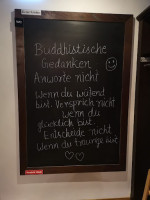 Buddhistische
Gedanken
Anworte nicht
Wenn du wütend
bist. Versprich nicht
wenn du
glücklich bist.
Entscheide nicht
Wenn du traurig bist